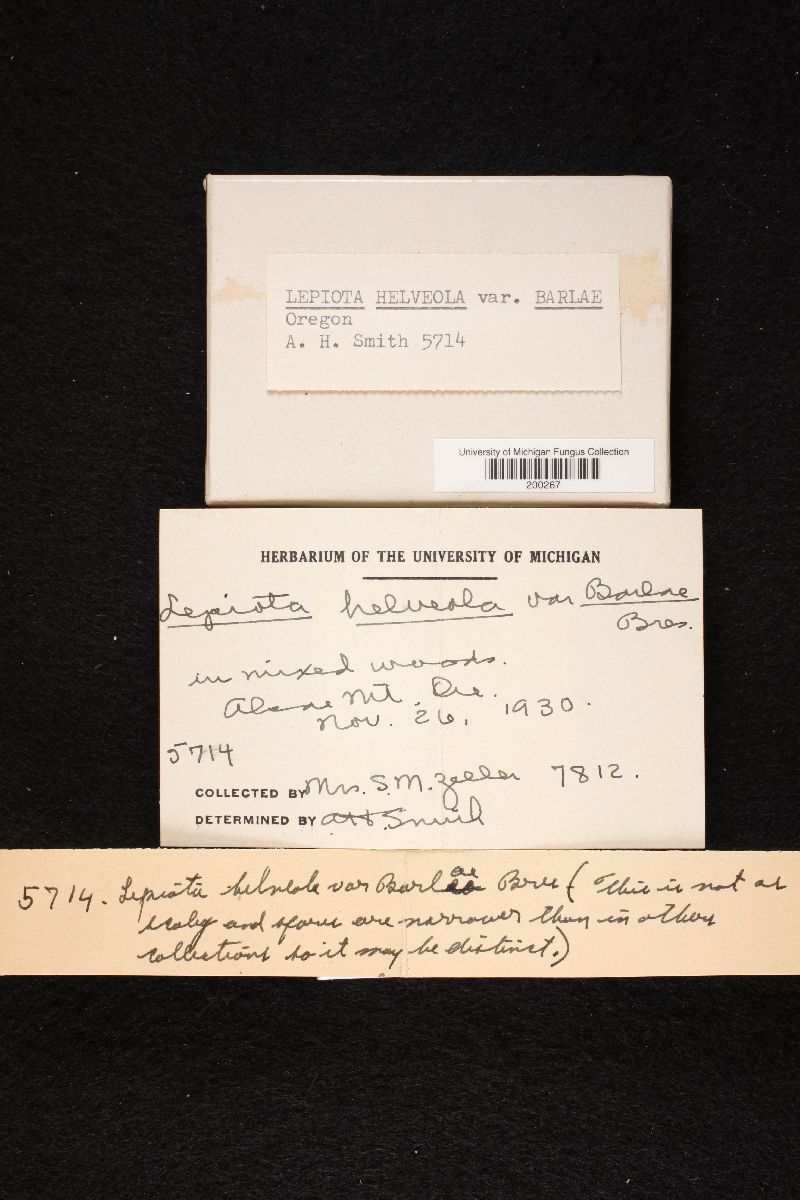 LEPIOTA HELVEOLA var. BARLAE
Oregon
A. H. Smith 5714
University of Michigan Fungus Collection
200267
HERBARIUM OF THE UNIVERSITY OF MICHIGAN
Lepiota helveola var Barlae
Bres.
in mixed woods.
Mt. Ore.
Nov. 26, 1930.
5714
COLLECTED BY Mrs. S. M. Zeller 7812.
DETERMINED BY AHSmith
5714. Lepiota helveola var Barlae Bres (This is not as
scaly and spores are narrower than in other
collections so it may be distinct.)